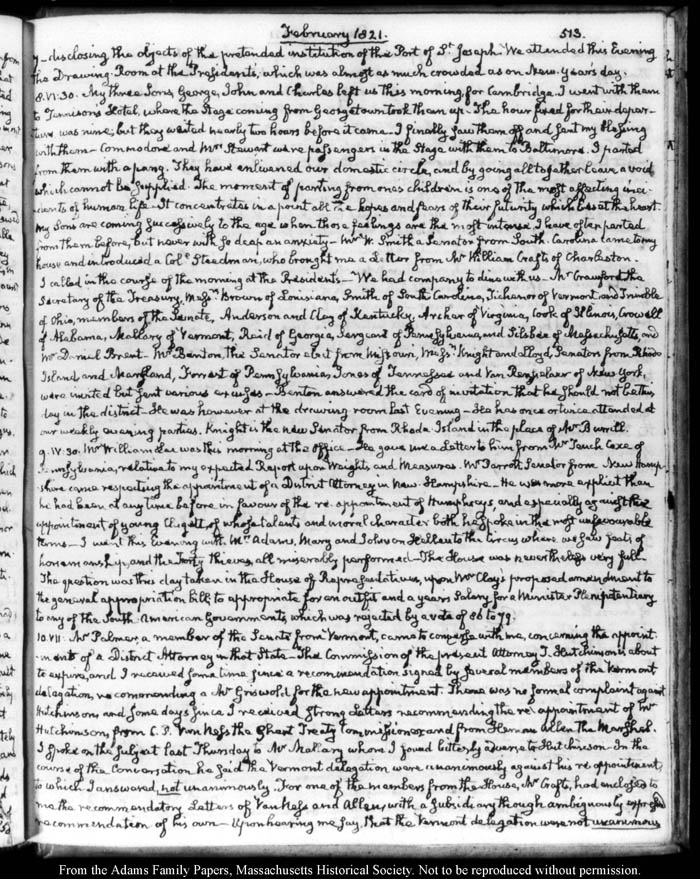 February 1821. 513.
y — disclosing the objects of the pretended institution of the Port of St. Joseph. We attended this Evening
the Drawing-Room at the Presidents, which was almost as much crowded as on New-Year's day.
8. VI:30. My three Sons, George, John and Charles left us this morning, for Cambridge. I went with them
to Tennison's Hotel, where the Stage coming from Georgetown took them up. The hour fixed for their depar-
ture was nine, but they waited nearly two hours before it came. I finally saw them off and sent my blessing
with them — Commodore and Mrs. Stewart were passengers in the Stage with them to Baltimore. I parted
from them with a pang. They have enlivened our domestic circle, and by going all together leave a void
which cannot be supplied. The moment of parting from ones children is one of the most affecting inci-
dents of human life. It concentrates in a point all the hopes and fears of their futurity which beset the heart.
My Sons are coming successively to the age when those feelings are the most intense. I have often parted
from them before, but never with so deep an anxiety — Mr. W. Smith a Senator from South-Carolina came to my
house and introduced a Colo. Steedman, who brought me a Letter from Mr. William Crafts of Charleston.
I called in the course of the morning at the Presidents — We had company to dine with us. Mr. Crawford the
Secretary of the Treasury, Messrs. Brown of Louisiana, Smith of South Carolina, Tichenor of Vermont and Trimble
of Ohio, members of the Senate, Anderson and Clay of Kentucky, Archer of Virginia, Cook of Illinois, Crowell
of Alabama, Mallary of Vermont, Reid of Georgia, Sergeant of Pennsylvania, and Silsbee of Massachusetts, and
Mr. Daniel Brent. Mr. Benton, the Senator elect from Missouri, Messrs. Knight and Lloyd, Senators from Rhode
Island and Maryland, Forrest of Pennsylvania, Jones of Tennessee and Van Rensselaer of New York,
were invited but sent various excuses — Benton answered the card of invitation that he should not be this
day in the district. He was however at the drawing room last Evening — He has once or twice attended at
our weekly evening parties. Knight is the new Senator from Rhode Island in the place of Mr. Burrill.
9. IV:30. Mr. William Lee was this morning at the Office — He gave me a Letter to him from Mr. Tench Coxe of
Pennsylvania, relative to my expected Report upon Weights and Measures. Mr. Parrott, Senator from New Hamp-
shire came respecting the appointment of a District Attorney in New-Hampshire. He was more explicit than
he had been at any time before in favour of the re-appointment of Humphreys and especially against the
appointment of young Claggett, of whose talents and moral character both he spoke in the most unfavourable
terms — I went this Evening with Mrs. Adams, Mary and Johnson Hellen to the Circus where we saw feats of
horsemanship, and the Forty thieves, all miserably performed — The House was nevertheless very full.
The question was this day taken in the House of Representatives, upon Mr. Clay's proposed amendment to
the general appropriation bill, to appropriate for an outfit and a years Salary for a Minister Plenipotentiary
to any of the South-American Governments, which was rejected by a vote of 86 to 79.
10. VII. Mr. Palmer, a member of the Senate from Vermont, came to converse with me, concerning the appoint-
-ment of a District Attorney in that State — The Commission of the present Attorney T. Hutchinson is about
to expire, and I received some time since a recommendation signed by several members of the Vermont
delegation, recommending a Mr. Griswold for the new appointment. There was no formal complaint against
Hutchinson, and some days since I received strong Letters recommending the re-appointment of Mr.
Hutchinson, from C. P. Van Ness the Ghent Treaty Commissioner, and from Heman Allen the Marshal.
I spoke on the subject last Thursday to Mr. Mallary whom I found bitterly averse to Hutchinson. In the
course of the Conversation he said the Vermont delegation were unanimously against his re-appointment,
to which I answered, not unanimously. For one of the members from the House, Mr. Crafts, had enclosed to
me the recommendatory Letters of Van Ness and Allen, with a subsidiary though ambiguously expressed
recommendation of his own — Upon hearing me say, that the Vermont delegation were not unanimous
From the Adams Family Papers, Massachusetts Historical Society. Not to be reproduced without permission.